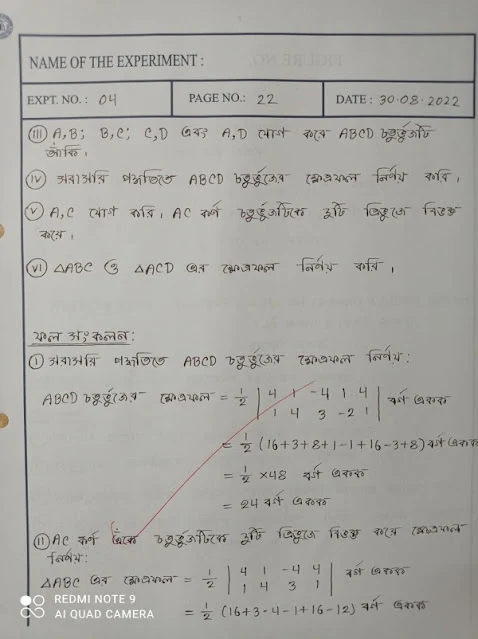 NAME OF THE EXPERIMENT :
EXPT. NO. : 04 PAGE NO.: 22 DATE : 30.08.2022
(III) A,B; B,C; C,D এবং A,D যোগ করে ABCD চতুর্ভুজটি
আঁকি।
(IV) সরাসরি পদ্ধতিতে ABCD চতুর্ভুজের ক্ষেত্রফল নির্ণয় করি।
(V) A,C যোগ করি। AC কর্ণ চতুর্ভুজটিকে দুটি ত্রিভুজে বিভক্ত
করে।
(VI) ΔABC ও ΔACD এর ক্ষেত্রফল নির্ণয় করি।
ফল সংকলন:
(I) সরাসরি পদ্ধতিতে ABCD চতুর্ভুজের ক্ষেত্রফল নির্ণয়:
ABCD চতুর্ভুজের ক্ষেত্রফল = 1/2 | 4 1 -4 1 4 | বর্গ একক
| 1 4 3 -2 1 |
= 1/2 (16+3+8+1-1+16-3+8) বর্গ একক
= 1/2 ×48 বর্গ একক
= 24 বর্গ একক
(II) AC কর্ণ এঁকে চতুর্ভুজটিকে দুটি ত্রিভুজে বিভক্ত করে ক্ষেত্রফল
নির্ণয়:
ΔABC এর ক্ষেত্রফল = 1/2 | 4 1 -4 4 | বর্গ একক
| 1 4 3 1 |
= 1/2 (16+3-4-1+16-12) বর্গ একক
REDMI NOTE 9
AI QUAD CAMERA